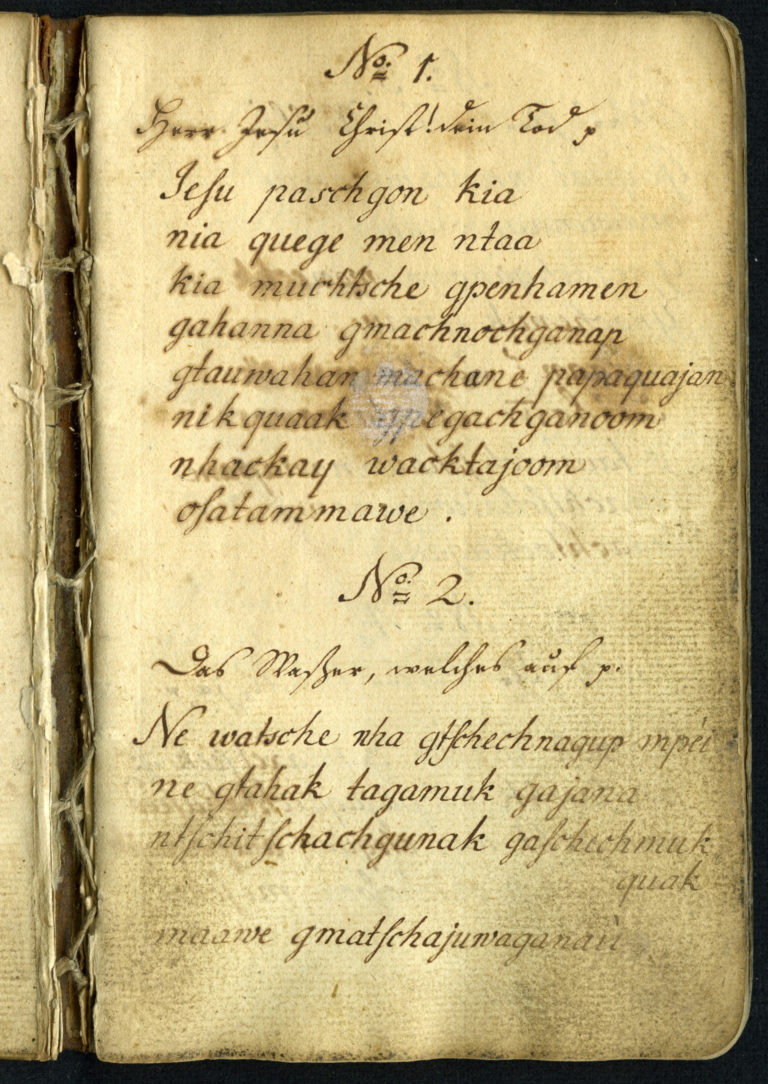 No. 1.
Herr Jesu Christ! dein Tod p
Jeſu paschgon kia
nia quege men ntaa
kia muchtsche gpenhamen
gahanna gmachnochganap
gtauwahan machane papaquajan
nik quaak gpegachganoom
nhackay wacktajoom
oſatammawe .
No. 2.
Das Waßer, welches auf p.
Ne watsche nha gtſchechnagup mpéi
ne gtahak tagamuk gajana
ntſchitſchachgunak gaſchechmuk
quak
maawe gmatſchajuwaganaù